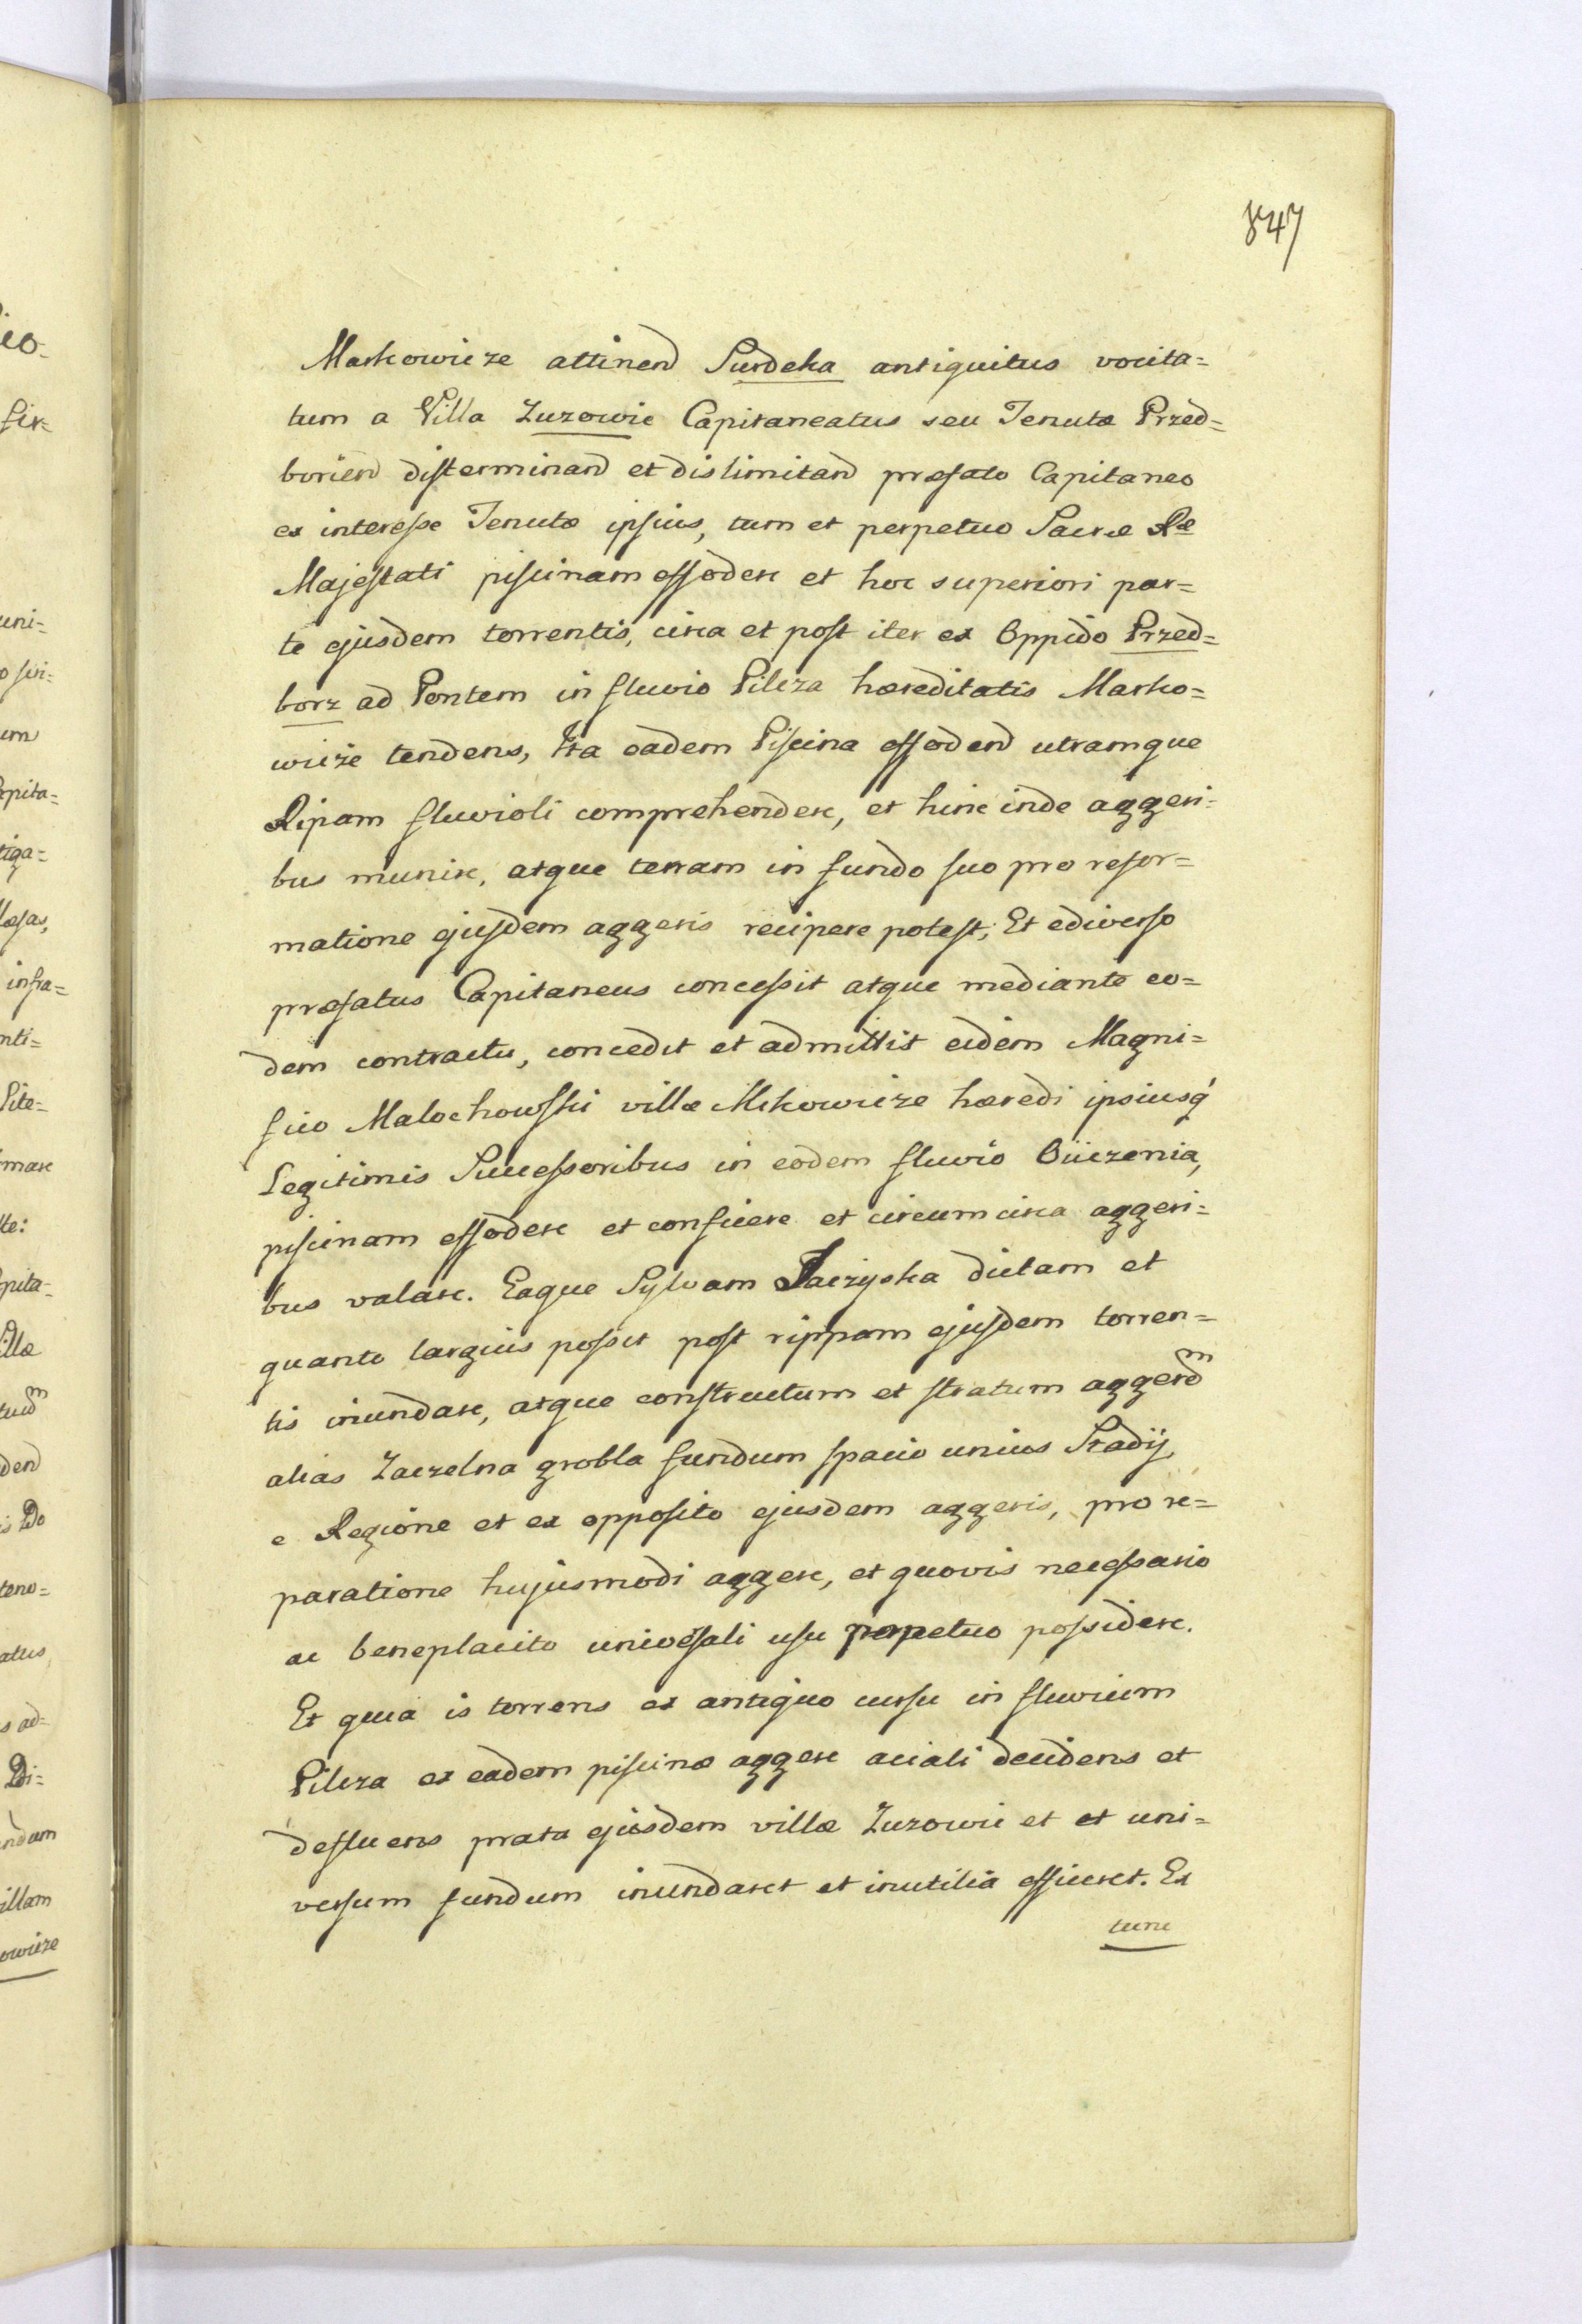 847
Markowicze attinend Surdeka antiquitus vocita=
tum a Villa Zuzowic Capitaneatus seu Tenutæ Przed=
borien disterminand et dislimitand præfato Capitaneo
ex interesse Tenutæ ipsius, tum et perpetuo Sacræ Ræ
Majestati piscinam effodere et hoc superiori par=
te ejusdem torrentis, circa et post iter ex Oppido Przed=
borz ad Pontem in fluvio Pilcza hæreditatis Marko=
wicze tendens, Ita eadem Piscina effodend utramque
Ripam fluvioli comprehendere, et hinc inde aggeri=
bus munire, atque terram in fundo suo pro refor=
matione ejusdem aggeris recipere potest; Et ediverso
præfatus Capitaneus concessit atque mediante eo=
dem contractu, concedit et admittit eidem Magni=
fico Malochowski villæ Mkowicze hæredi ipsiusq́
Legitimis Successoribus in eodem fluvio
piscinam effodere et conficere et circumcirca aggeri=
bus valare. Eaque Sylvam Jaczyska dictam et
quanto largius posset post rippam ejusdem torren=
tis inundare, atque constructum et stratum aggerem
alias Zaczelna grobla fundum spacio unius Stadij,
e Regione et ex opposito ejusdem aggeris, pro re=
paratione hujusmodi aggere, et quovis necessario
ac beneplacito univesali usu perpetuo possidere.
Et quia is torrens ex antiquo cursu in fluvium
Pilcza ex eadem piscinæ aggere aciali decidens et
defluens prata ejusdem villæ Zuzowic et et uni=
versum fundum inundaret et inutilia efficeret. Ex
tunc